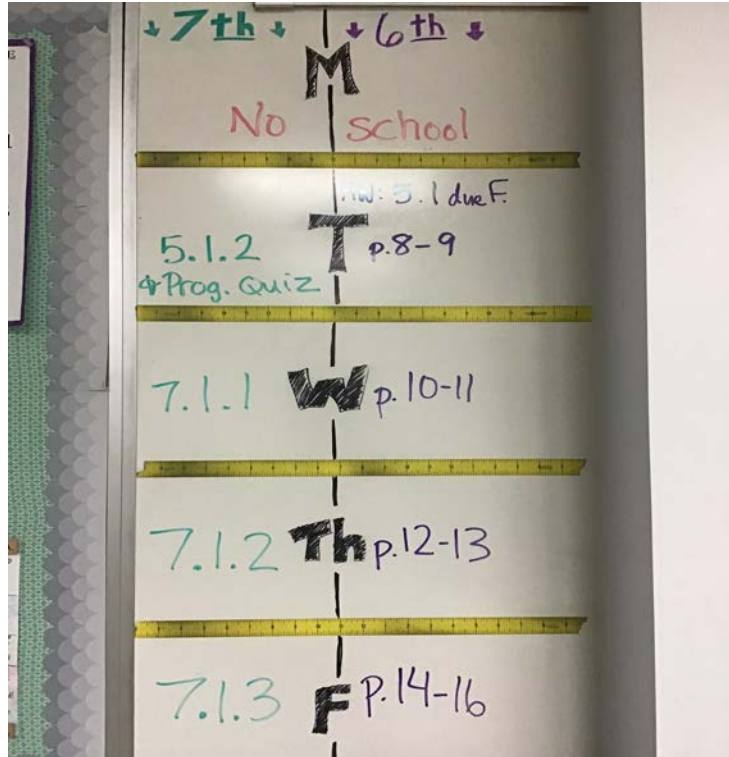 ↓ 7th ↓ ↓ 6th ↓
M
No school
HW: 5.1 due F.
5.1.2 T p.8-9
& Prog. Quiz
7.1.1 W p.10-11
7.1.2 Th p.12-13
7.1.3 F p.14-16